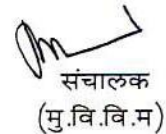 संचालक
(मु.वि.वि.म)